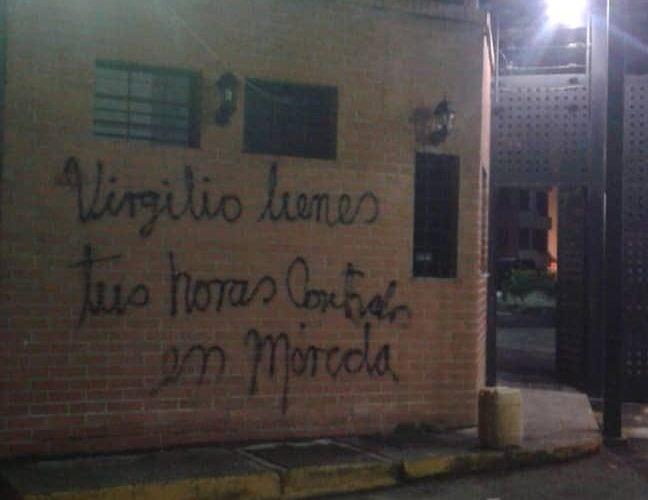 Virgilio tienes
tus horas Contadas
en Mérida